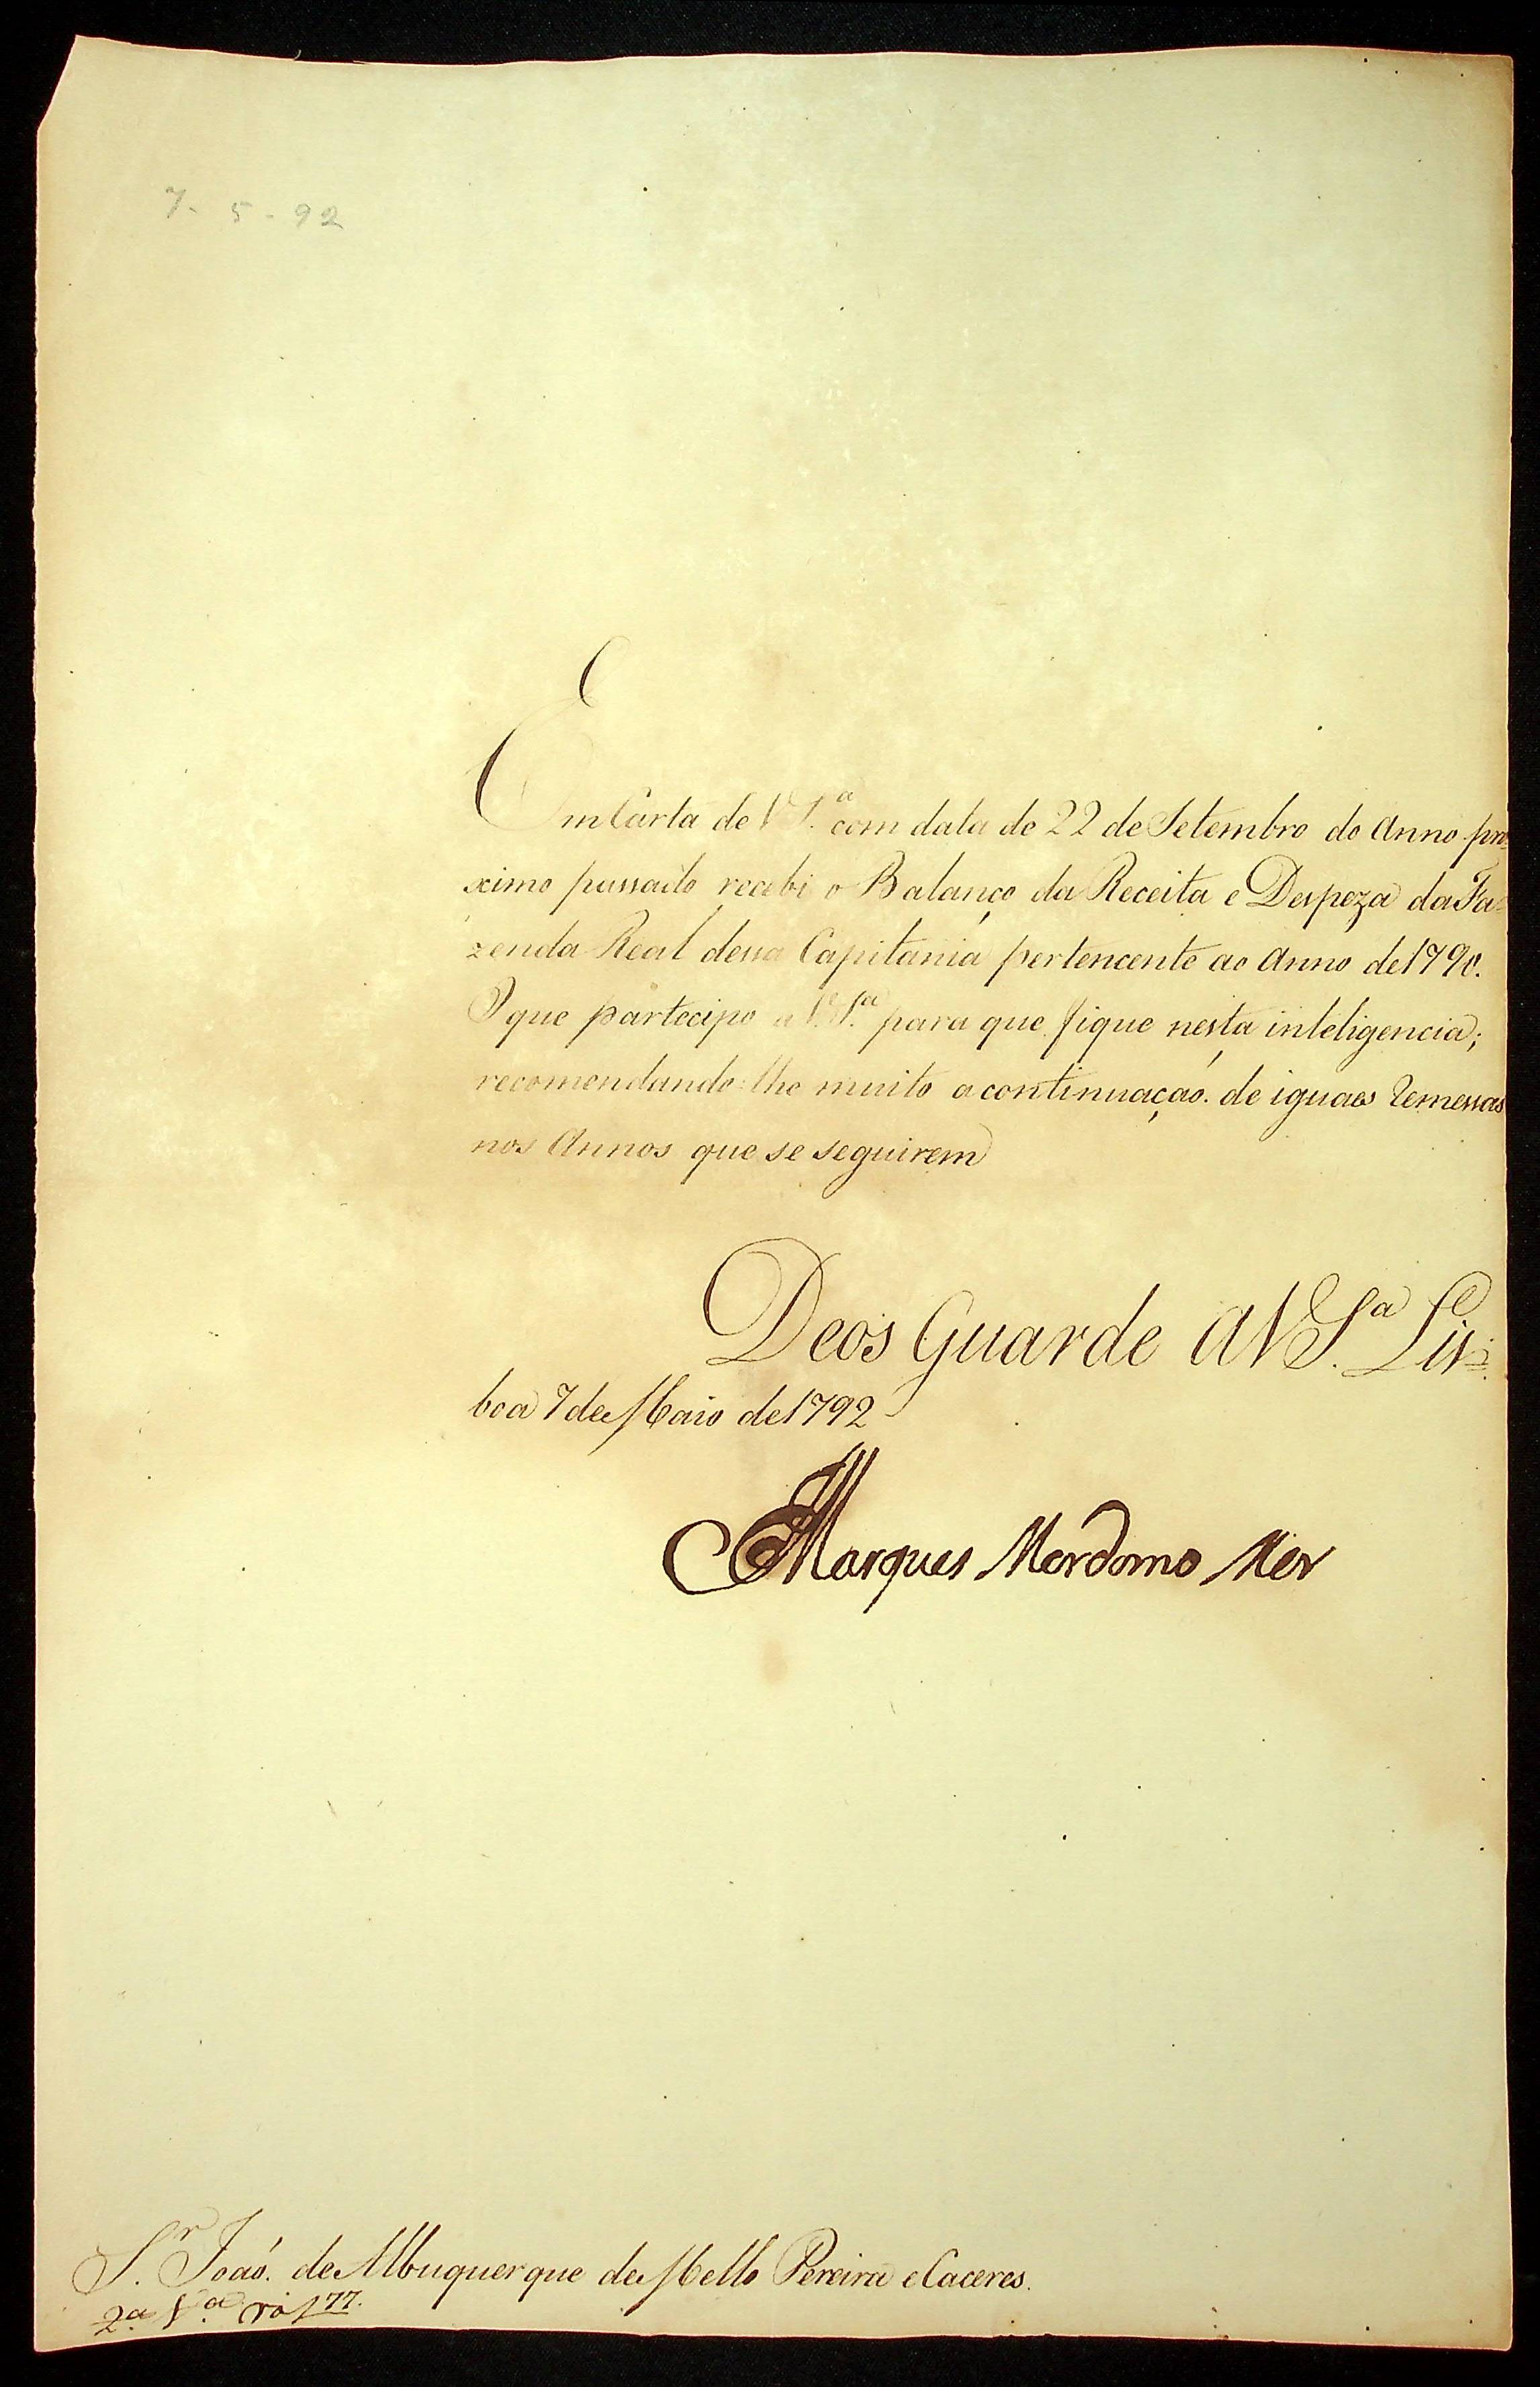 7-5-92
Em Carta de V S.ª com data de 22 de Setembro do Anno pro=
ximo passado recebi o Balanço da Receita e Despeza da Fa=
zenda Real dessa Capitania pertencente ao Anno de 1790.
O que partecipo a V.S.ª para que fique nesta inteligencia;
recomendando=lhe muito a continuaçaó de iguaes Remessas
nos Annos que se seguirem
Deos Guarde a V S.ª Lis=
boa 7 de Maio de 1792
Marques Mordomo Mor
S.r Joaó de Albuquerque de Mello Pereira e Caceres.
2.ª V.ª